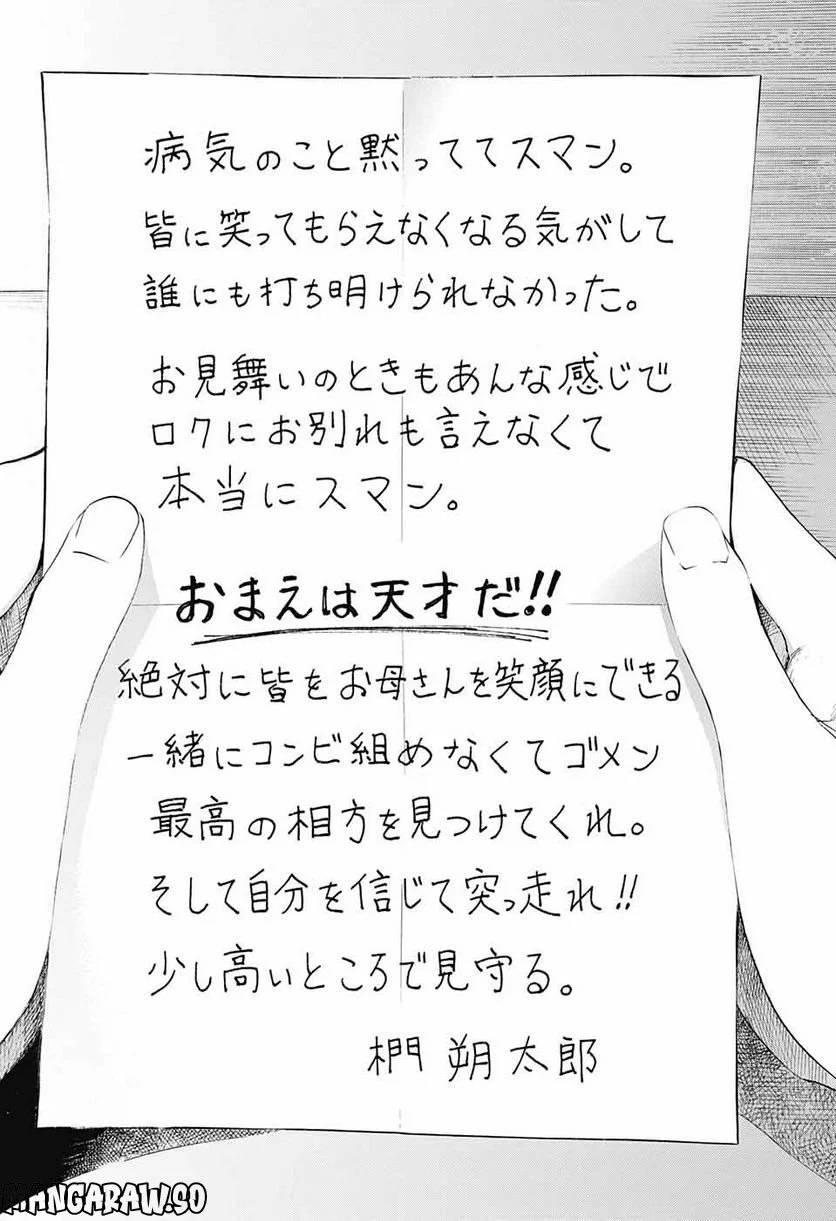 病気のこと黙っててスマン。
皆に笑ってもらえなくなる気がして
誰にも打ち明けられなかった。
お見舞いのときもあんな感じで
ロクにお別れも言えなくて
本当にスマン。
おまえは天才だ!!
絶対に皆をお母さんを笑顔にできる
一緒にコンビ組めなくてゴメン
最高の相方を見つけてくれ。
そして自分を信じて突っ走れ!!
少し高いところで見守る。
椚 朔太郎
MANGARAW.SO